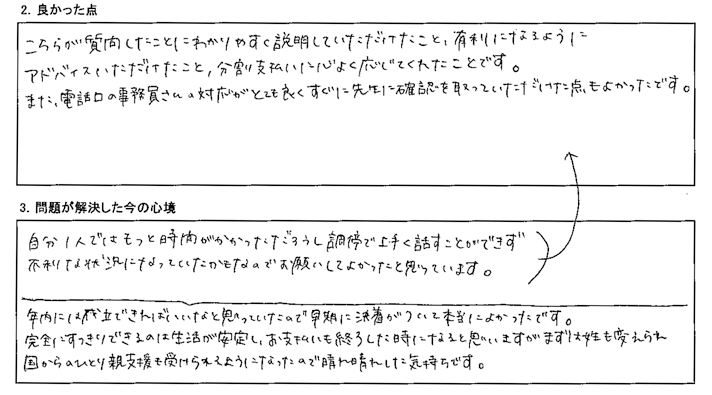 2. 良かった点
こちらが質問したことにわかりやすく説明していただけたこと，有利になるように
アドバイスいただけたこと，分割支払いに心よく応じてくれたことです。
また、電話口の事務員さんの対応がとても良くすぐに先生に確認を取っていただけた点もよかったです。
3. 問題が解決した今の心境
自分1人ではもっと時間がかかっただろうし調停で上手く話すことができず
不利な状況になっていたかもなのでお願いしてよかったと思っています。
年内には成立できればいいなと思っていたので早期に決着がついて本当によかったです。
完全にすっきりできるのは生活が安定し、お支払いも終了した時になると思いますがまずは姓も変えられ
国からのひとり親支援も受けられるようになったので晴れ晴れした気持ちです。